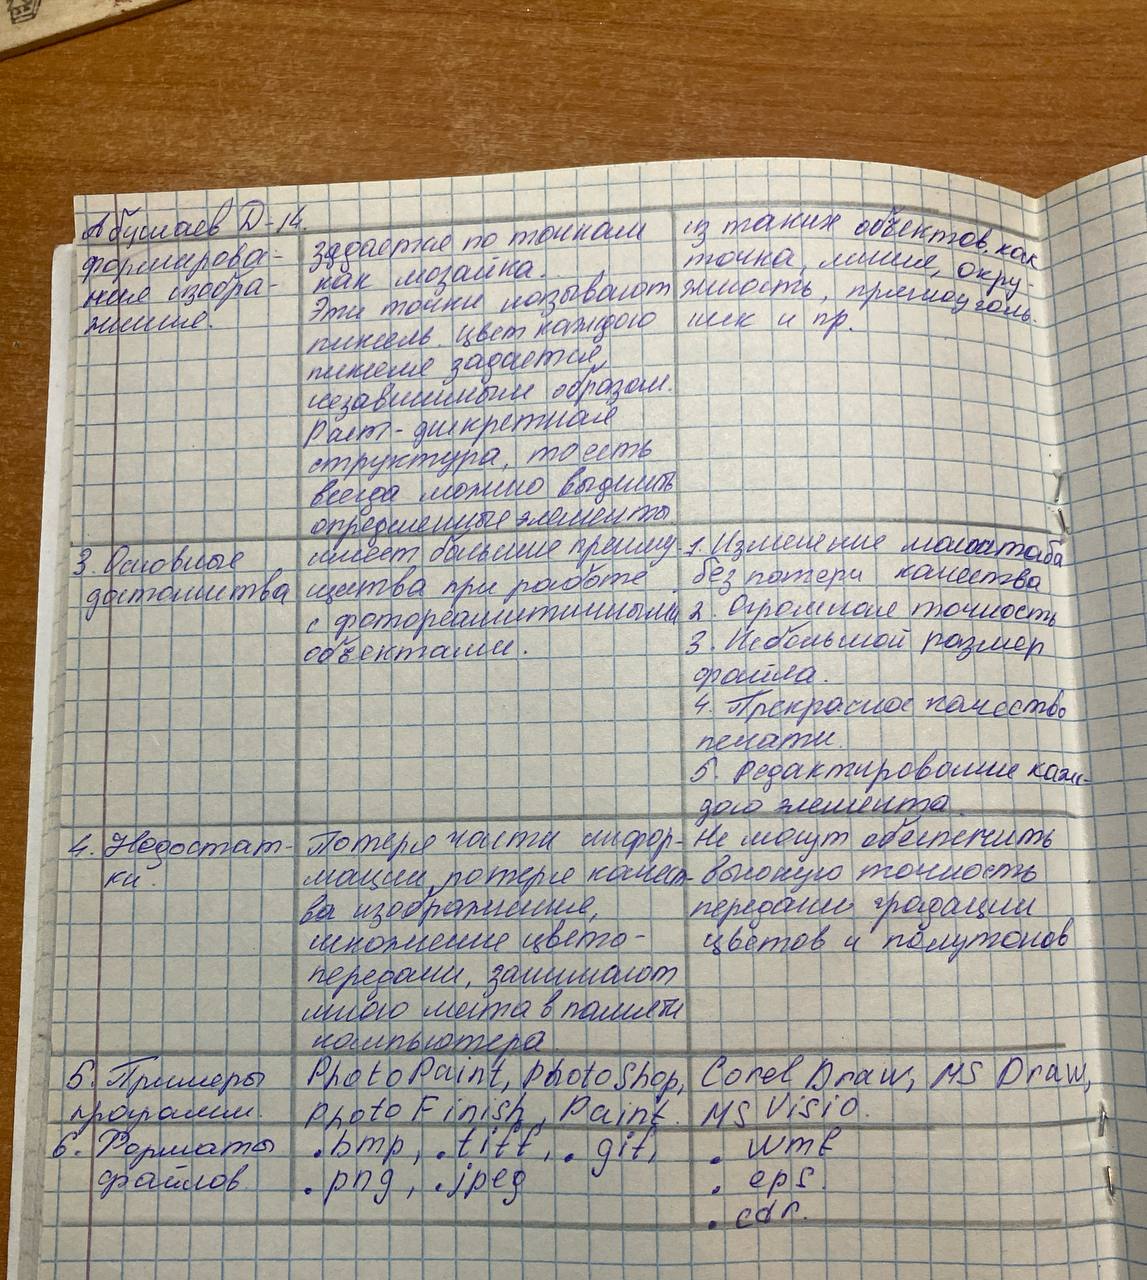 Абушаев Д-14.
формирова-
ния изобра-
жения.
задается по точкам
как мозайка.
Эти точки называют
пиксель. цвет каждого
пикселя задается,
независимым образом.
Раст- дискретная
структура, тоесть
всегда можно выделить
определенные элементы
из таких объектов, как
точка, линия, окру-
жность, прямоуголь.
ник и пр.
3. Основные
достоинства
имеет большие преиму
щества при работе
с фотореалистичными
объектами.
1. Изменение масштаба
без потери качества
2. Огромная точность
3. Небольшой размер
файла.
4. Прекрасное качество
печати.
5. Редактирование каж-
дого элемента.
4. Недостат-
ки.
Потеря части инфор-
мации, потеря качест-
ва изображения,
искажение цвето-
передачи, занимают
много места в памяти
компьютера.
Не могут обеспечить
высокую точность
передачи градации
цветов и полутонов
5. Примеры
программ.
PhotoPaint, PhotoShop,
Photo Finish, Paint.
Corel Draw, MS Draw,
MS Visio.
6. Форматы
файлов
.bmp, .tiff, .gif,
.png, .jpeg
. wmf
. eps.
. cdr.